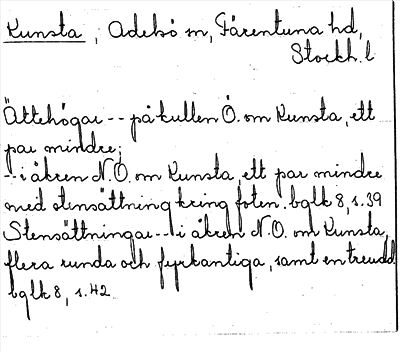 Kunsta, Adelsö sn, Färentuna hd,
Stockh. l
Ättehögar -- på kullen Ö. om Kunsta, ett
par mindre;
-- i åkren N.Ö. om Kunsta, ett par mindre
med stensättning kring foten. bglk 8, s. 39
Stensättningar -- i åkren N.O. om Kunsta,
flera runda och fyrkantiga, samt en treudd.
bglk 8, s. 42